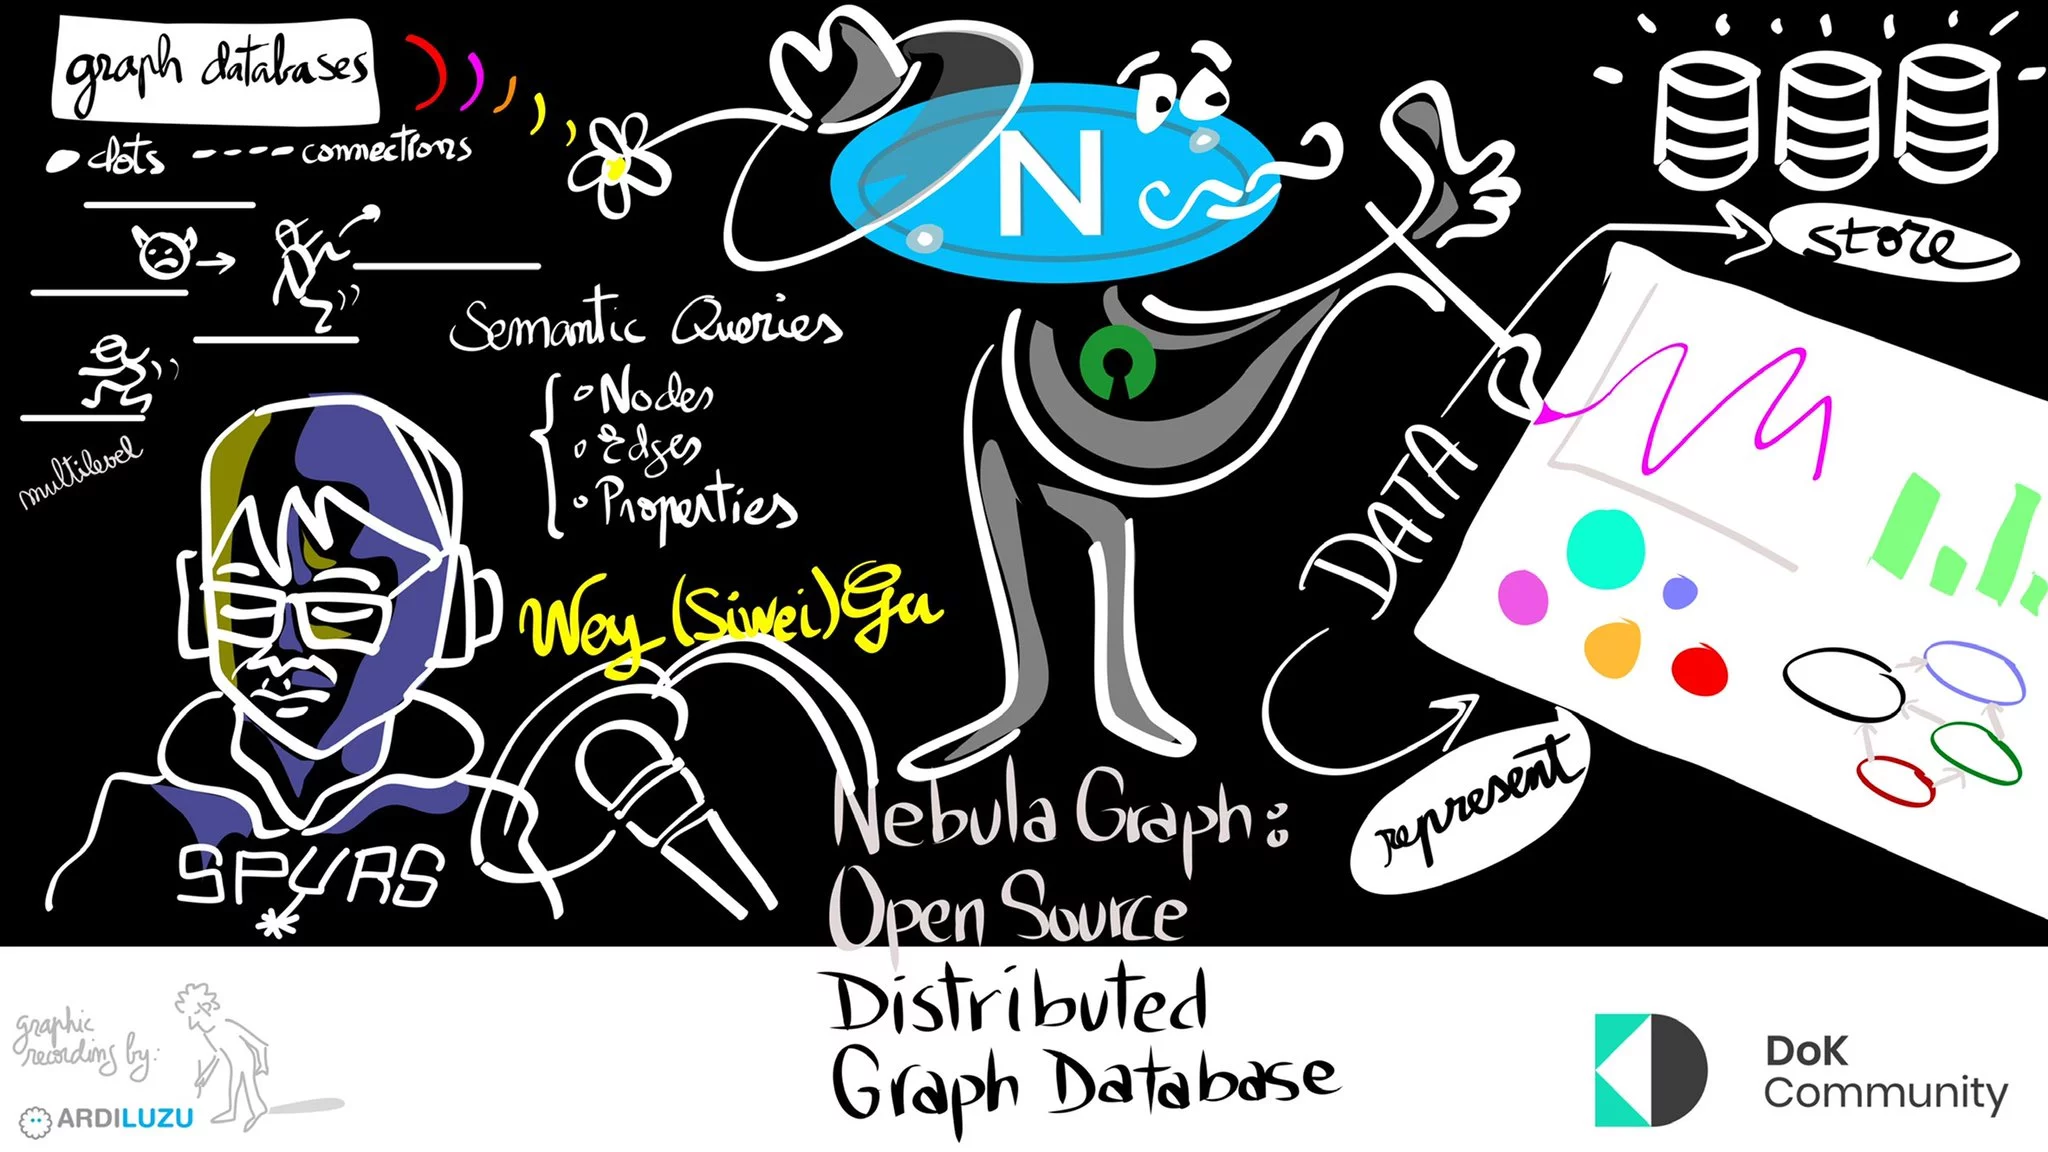 graph databases
dots ---- connections
multilevel
Semantic Queries
Nodes
Edges
Properties
Wey (Siwei) Gu
SPURS
N
store
DATA
represent
Nebula Graph:
Open Source
Distributed
Graph Database
graphic
recording by:
ARDILUZU
DoK
Community